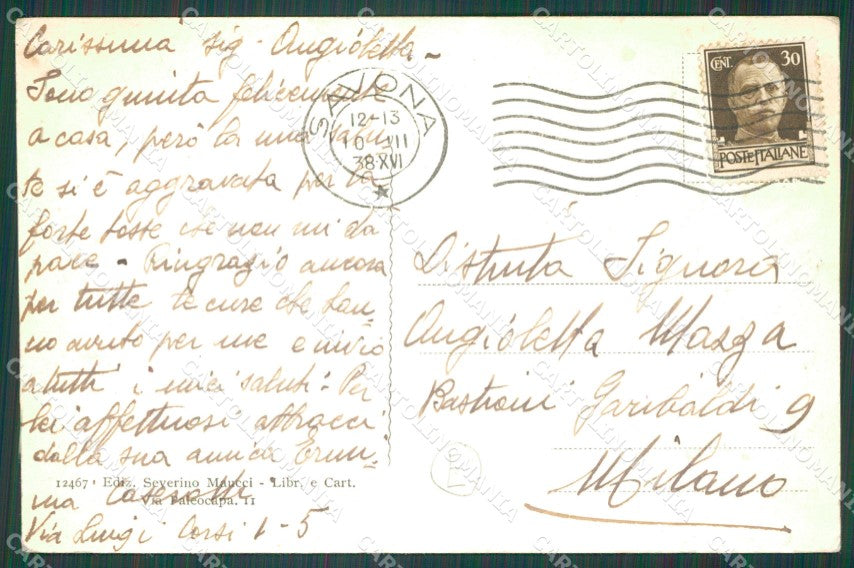 Carissima sig. Angioletta -
Sono giunta felicemente
a casa, però la mia salu-
te si è aggravata per la
forte tosse che non mi da
pace - Ringrazio ancora
per tutte le cure che han-
no avuto per me e invio
a tutti i miei saluti. Per
lei affettuosi abbracci
dalla sua amica Ermi-
nia
Via Luigi Corsi 1-5
12467 Ediz. Severino Maucci - Libr. e Cart.
Via Paleocapa. 11
SAVONA
12-13
10 VII
38 XVI
CENT. 30
POSTE ITALIANE
Distinta Signora
Angioletta Mazza
Bastioni Garibaldi 9
Milano
CARTOLINOMANIA